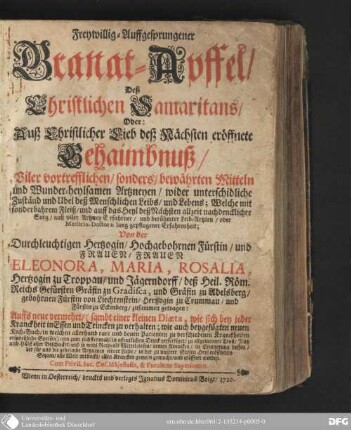 Freywillig-Auffgesprungener
Granat-Apffel/
Deß
Christlichen Samaritans/
Oder:
Auß Christlicher Lieb deß Nächsten eröffnete
Gehaimbnuß/
Viler vortrefflichen/sonders/bewährten Mitteln
und Wunder-heylsamen Artzneyen/ wider unterschidliche
Zuständ und Ubel deß Menschlichen Leibs/ und Lebens; Welche mit
sonderbahrem Fleiß/ und auff das Heyl deß Nächsten allzeit nachdencklicher
Sorg/ auß viler Artzney Erfahrner/ und berühmter Leib-Artzten/ oder
Medicinæ Doctorn lang gepflogener Erfahrenheit;
Von der
Durchleutigen Hertzogin/ Hochgebohrnen Fürstin/ und
FRAUEN/ FRAUEN
ELEONORA, MARIA, ROSALIA,
Hertzogin zu Troppau/ und Jägerndorff/ deß Heil. Röm.
Reichs Gefürsten Gräfin zu Gradisca, und Gräfin zu Adelsberg/
gebohrnen Fürstin von Liechtenstein/ Hertzogin zu Crummau/ und
Fürstin zu Eckenberg/ zusammen getragen/
Auffs neue vermehrt/ sambt einer kleinen Diæta, wie sich bey jeder
Kranckheit in Essen und Trincken zu verhalten; wie auch beygefügten neuen
Koch-Buch/ in welchem allerhand
Cum Privil. Sac. Cæs. Majestatis, & Facultate Superiorum.
Wienn in Oesterreich/ druckts und verlegts Ignatius Dominicus Voigt/ 1720.